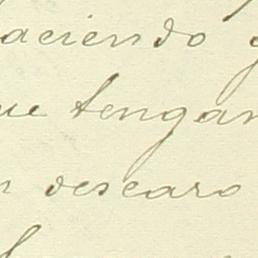 aciendo
ue tengan
n descaro